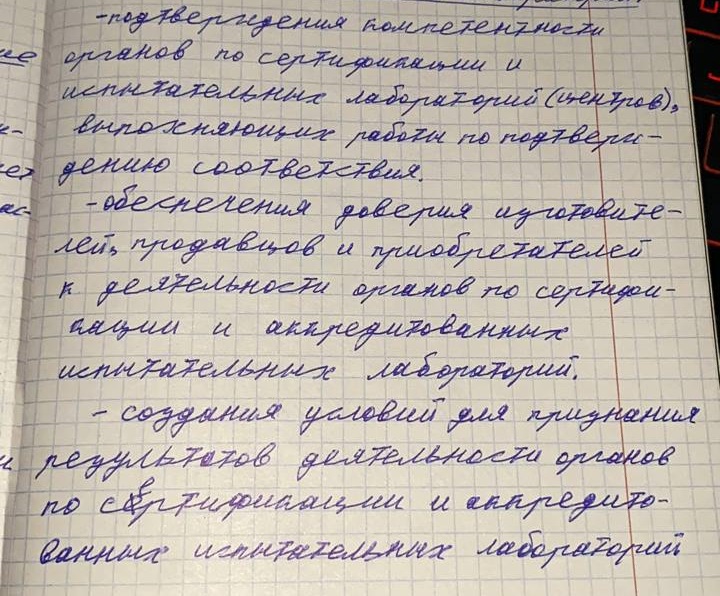 -подтверждения компетентности
органов по сертификации и
испытательных лабораторий (центров),
выполняющих работы по подтверж-
дению соответствия.
-обеспечения доверия изготовите-
лей, продавцов и приобретателей
к деятельности органов по сертифи-
кации и аккредитованных
испытательных лабораторий.
- создания условий для признания
результатов деятельности органов
по сертификации и аккредито-
ванных испытательных лабораторий